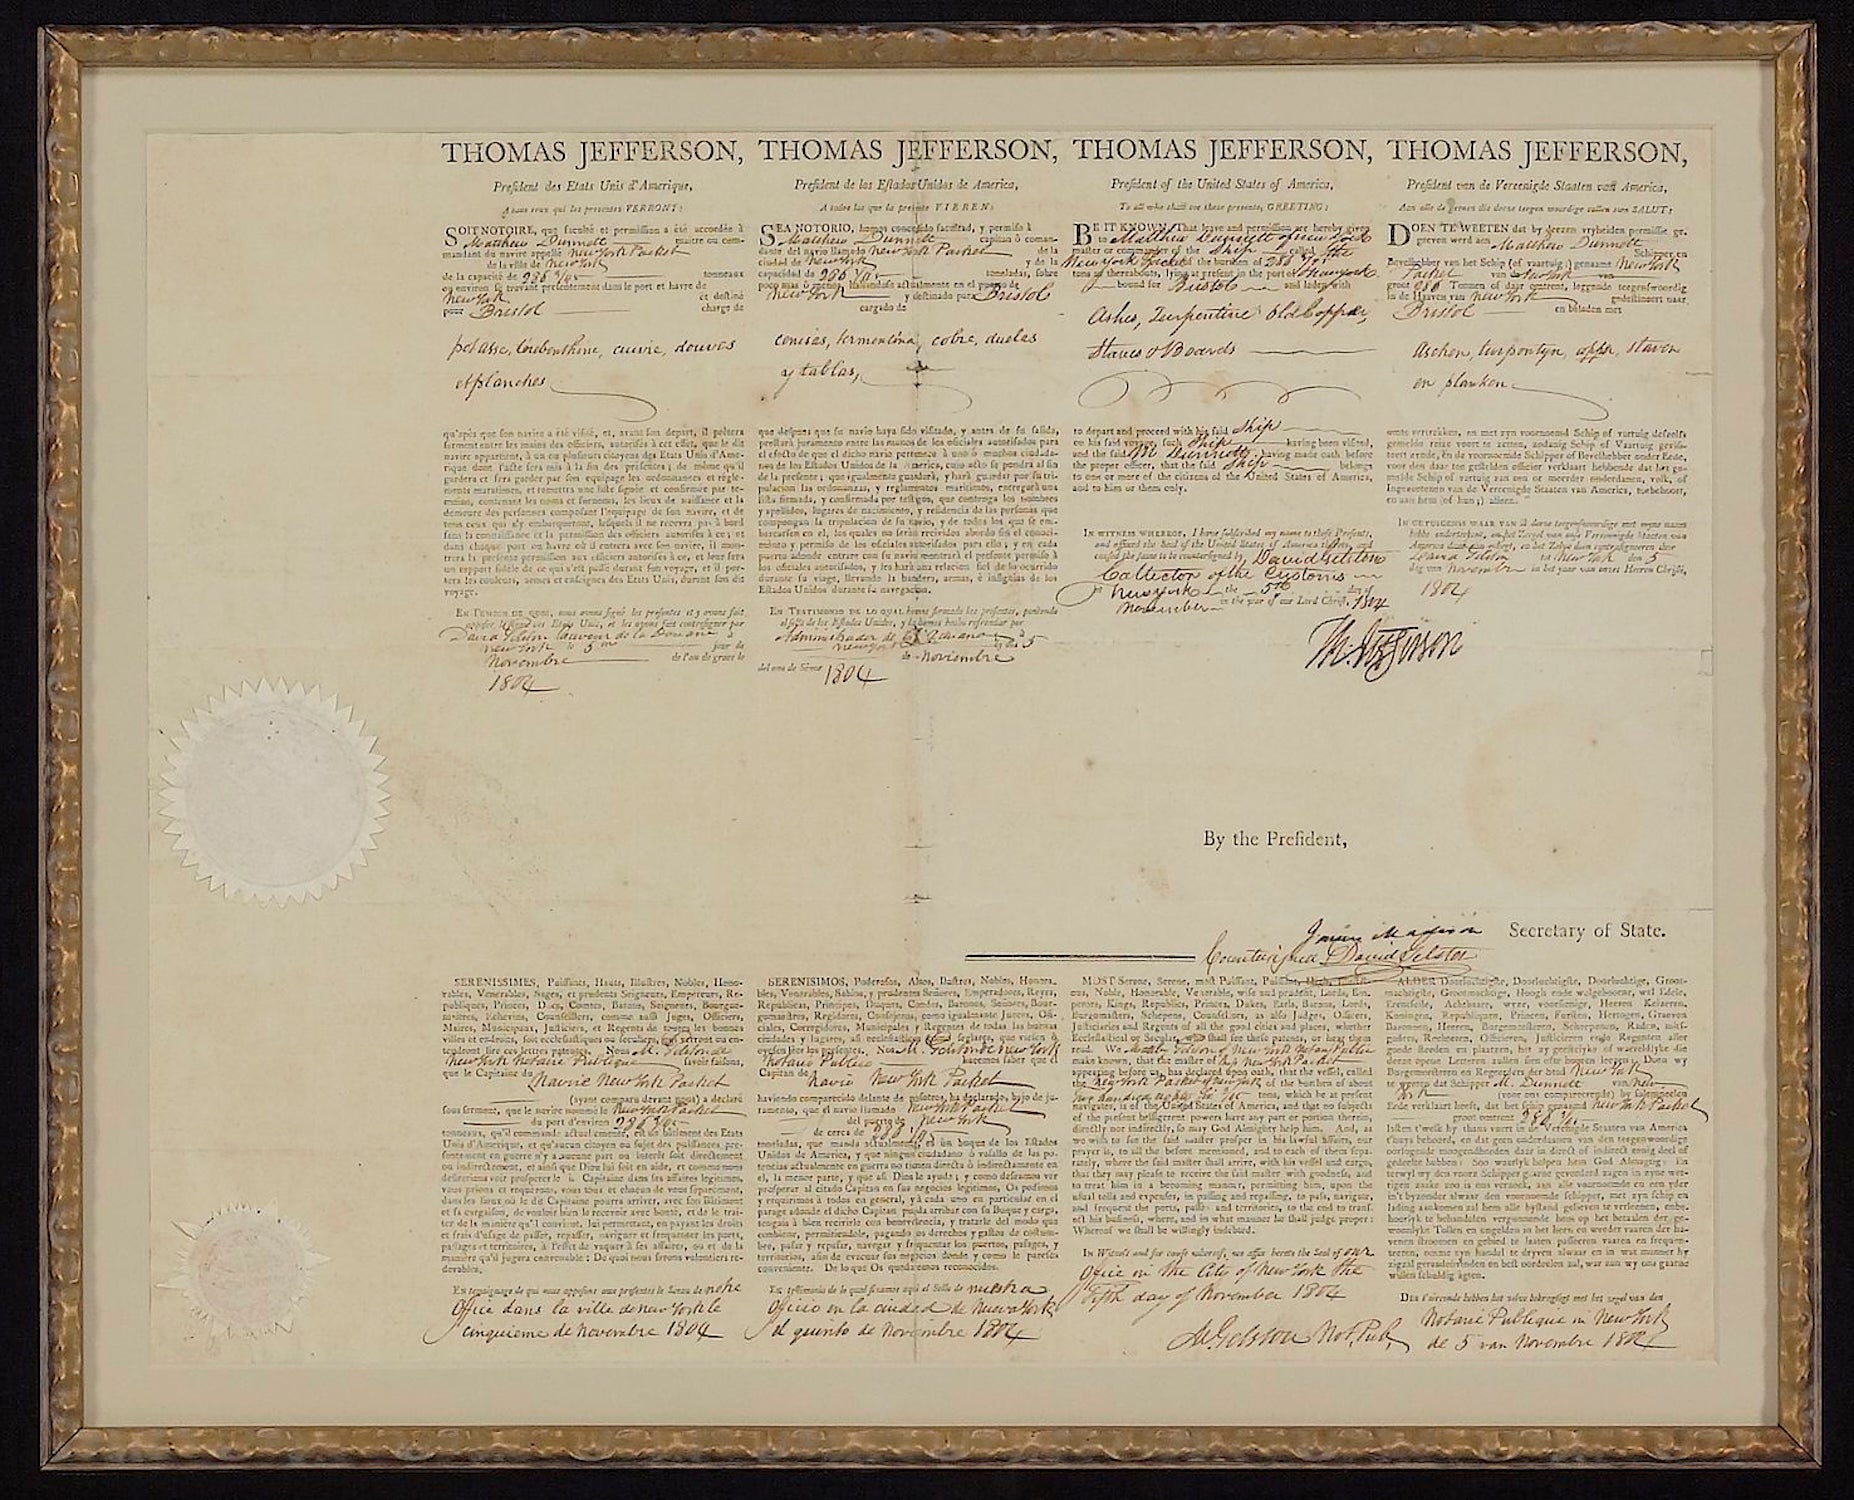 THOMAS JEFFERSON,
President des Etats Unis d'Amerique,
A tous ceux qui les presentes VERRONT:
SOIT NOTOIRE, que faculté et permission a été accordée à
Matthew Dunnett maitre ou com-
mandant du navire appellé New York Packet
de la ville de New York
de la capacité de 286 tonneaux
ou environ se trouvant presentement dans le port et havre de
New York et destiné
pour Bristol chargé de
potasse, terebenthine, cuivre, douves
et planches
qu'après que son navire a été visité, et, avant son depart, il prêtera
serment entre les mains des officiers, autorisés à cet effet, que le dit
navire appartient, à un ou plusieurs citoyens des Etats Unis d'Ame-
rique dont l'acte sera mis à la fin des présentes; de même qu'il
gardera et fera garder par son equipage les ordonnances et régle-
mens maratimes, et remettra une liste signée et confirmée par te-
moins, contenant les noms et surnoms, les lieux de naissance et la
demeure des personnes composant l'equipage de son navire, et de
tous ceux qui s'y embarqueront, lesquels il ne recevra pas à bord
sans la connaissance et la permission des officiers autorisés à ce; et
dans chaque port ou havre où il entrera avec son navire, il mon-
trera la presente permission aux officiers autorisés à ce, et leur fera
un rapport fidèle de ce qui s'est passé durant son voyage, et il por-
tera les couleurs, armes et enseignes des Etats Unis, durant son dit
voyage.
EN TEMOIN DE QUOI, nous avons signé les presentes et y avons fait
apposer le sceau des Etats Unis, et les avons fait contresigner par
David Gelston Receveur de la Douane à
New York le 5me jour de
Novembre de l'an de grace
1804
THOMAS JEFFERSON,
President de los Estados Unidos de America,
A todos los que la presente VIEREN:
SEA NOTORIO, hemos concedido facultad, y permiso à
Matthew Dunnett capitan ò coman-
dante del navio llamado New York Packet de la
ciudad de New York y de la
capacidad de 286 toneladas, sobre
poco mas ò menos, hallandose actualmente en el puerto de
New York y destinado para Bristol
cargado de
cenisas, termentina, cobre, duelas
y tablas,
que despues que su navio haya sido visitado, y antes de su salida,
prestará juramento entre las manos de los oficiales autorisados para
el efecto de que el dicho navio pertenece à uno ó muchos ciudada-
nos de los Estados Unidos de la America, cuio acto se pondra al fin
de la presente; que igualmente guadará, y hará guardar por su tri-
pulacion las ordonanzas, y reglamentos maritimos, entregará una
lista firmada, y confirmada por testigos, que contenga los nombres
y apellidos, lugares de nacimiento, y residencia de las personas que
compongan la tripulacion de su navio, y de todos los que se em-
barcarsen en el, los quales no serán recividos abordo sin el conoci-
miento y permiso de los oficiales autorisados para ello; y en cada
puerto adonde entrare con su navio mostrará el presente permiso à
los oficiales autorisados, y les hará una relacion fiel de lo ocurrido
durante su viage, llevando la bandera, armas, è insignias de los
Estados Unidos durante su navegacion.
EN TESTIMONIO DE LO QUAL hemos firmado los presentes, poniendo
el sello de los Estados Unidos, y la hemos hecho refrendar por
Administrador de la Aduana
New York à los 5
de Noviembre
del ano de 1804
THOMAS JEFFERSON,
President of the United States of America,
To all who shall see these presents, GREETING:
BE IT KNOWN, That leave and permission are hereby given
to Matthew Dunnett of New York
master or commander of the Ship called the
New York Packet of the burthen of 286 
tons or thereabouts, lying at present in the port of New York
bound for Bristol and laden with
Ashes, Turpentine Old Copper,
Staves & Boards
to depart and proceed with his said Ship
on his said voyage, such Ship having been visited,
and the said M Dunnett having made oath before
the proper officer, that the said Ship belongs
to one or more of the citizens of the United States of America,
and to him or them only.
IN WITNESS WHEREOF, I have subscribed my name to these Presents,
and affixed the Seal of the United States of America thereto, and
caused the same to be countersigned by David Gelston
Collector of the Customs
at New York the 5th day of
November in the year of our Lord Christ, 1804
Th: Jefferson
THOMAS JEFFERSON,
President van de Vereenigde Staaten van America,
Aan alle de geenen die deeze tegen woordige zullen zien SALUT:
DOEN TE WEETEN dat by deezen vryheiden permissie ge-
geeven werd aen Matthew Dunnett
Schipper en
Bevelhebber van het Schip (of vaartuig) genaame New York
Packet van New York van
groot 286 Tonnen of daar omtrent, leggende teegenswoordig
in de Haaven van New York gedestineert naar
Bristol en beladen met
Aschen, turpentyn, copper, staven
en planken
omte vertrekken, en met zyn voornoemd Schip of vaartuig deselfs
gemelde reize voort te zetten, zodanig Schip of Vaartuig gevisi-
teert zynde, en de voornoemde Schipper of Bevelhebber onder Eede,
voor den daar toe gestelden officier verklaart hebbende dat het ge-
melde Schip of vartuig aan een or meerder onderdanen, volk, of
Ingezetenen van de Vereenigde Staaten van America, toebehoort,
en aan hem (of hun;) alleen.
IN GETUIGENIS WAAR VAN
David Gelston te New York den 5
dag van November in het jaar van onzes Heeren Christi,
1804
By the President,
James Madison Secretary of State.
Countersigned David Gelston
SERENISSIMES, Puissants, Hauts, Illustres, Nobles, Hono-
rables, Venerables, Sages, et prudents Seigneurs, Empereurs, Re-
publiques, Princes, Ducs, Comtes, Barons, Seigneurs, Bourgue-
maitres, Echevins, Counseillers, comme aussi Juges, Officiers,
Maires, Municipaux, Justiciers, et Regents de toutes les bonnes
villes et endroits, soit ecclésiastiques ou seculiers, qui verront ou en-
tendront lire ces lettres patentes. Nous M. Gelston de
New York Notaire Publique savoir faisons,
que le Capitaine du Navire New York Packet
(ayant comparu devant nous) a declaré
sous serment, que le navire nommé le New York Packet
du port d'environ 286
tonneaux, qu'il commande actuellement, est un bâtiment des Etats
Unis d'Amerique, et qu'aucun citoyen ou sujet des puissances pre-
sentement en guerre n'y a aucune part ou interêt soit directement
ou indirectement, et ainsi que Dieu lui soit en aide, et comme nous
desirerions voir prosperer le dit Capitaine dans ses affaires légitimes,
vous prions et requerons, vous tous et chacun de vous separément,
dans les lieux où le dit Capitaine pourra arriver, avec son Bâtiment
et sa cargaison, de vouloir bien le recevoir avec bonté, et de le trai-
ter de la manière qu'il convient, lui permettant, en payant les droits
et frais d'usage de passer, repasser, naviguer et frequenter les ports,
passages et territoires, à l'effet de vaquer à ses affaires, où et de la
manière qu'il jugera convenable: De quoi nous serons volontiers re-
devables.
En temoignage de quoi nous apposons aux presentes le Sceau de notre
Office dans la ville de New York le
cinquieme de Novembre 1804
SERENISIMOS, Poderosos, Altos, Ilustres, Nobles, Honora-
bles, Venerables, Sabios, y prudentes Señores, Emperadores, Reyes,
Republicas, Principes, Duques, Condes, Barones, Señores, Bour-
gomastres, Regidores, Consejeros, como igualmente Jueces, Ofi-
ciales, Corregidores, Municipales y Regentes de todas las buenas
ciudades y lugares, asi ecclesiasticos como seglares, que vieren ò
oyesen leer los presentes. Nos M. Gelston de New York
Notario Publico hacemos saber que el
Capitan de Navio New York Packet
haviendo comparecido delante de nosotros, ha declarado, bajo de ju-
ramento, que el navio llamado New York Packet
del puerto de New York
de cerca de 286
toneladas, que manda actualmente, es un buque de los Estados
Unidos de America, y que ningun ciudadano ó vasallo de las po-
tencias actualmente en guerra no tienen directa ò indirectamente en
el, la menor parte, y que asi Dios le ayude; y como deseamos ver
prosperar al citado Capitan en sus negocios legitimos, Os pedimos
y requirimos à todos en general, y à cada uno en particular en el
parage adonde el dicho Capitan pueda arribar con su Buque y carga,
tengais à bien recivirle con benevolencia, y tratarle del modo que
combiene, permitiendole, pagando los derechos y gastos de costum-
bre, pasar y repasar, navegar y frequentar los puertos, pasages, y
territorios, afin de evacuar sus negocios donde y como le parecès
conveniente. De lo que Os quedaremos reconocidos.
En testimonio de lo qual firmamos aqui el Sello de nuestra
Oficio en la ciudad de Nueva York
el quinto de Novembre 1804
MOST Serene, Serene, most Puissant, Puissant, High, Illustri-
ous, Noble, Honorable, Venerable, wise and prudent, Lords, Em-
perors, Kings, Republics, Princes, Dukes, Earls, Barons, Lords,
Burgomasters, Schepens, Counsellors, as also Judges, Officers,
Justiciaries and Regents of all the good cities and places, whether
Ecclesiastical or Secular, who shall see these patents, or hear them
read. We Gelston of New York Notary Public
make known, that the master of the New York Packet
appearing before us, has declared upon oath, that the vessel, called
the New York Packet of New York of the burthen of about
two hundred eighty six tons, which he at present
navigates, is of the United States of America, and that no subjects
of the present belligerent powers have any part or portion therein,
directly nor indirectly, so may God Almighty help him. And, as
we wish to see the said master prosper in his lawful affairs, our
prayer is, to all the before mentioned, and to each of them sepa-
rately, where the said master shall arrive, with his vessel and cargo,
that they may please to receive the said master with goodness, and
to treat him in a becoming manner, permitting him, upon the
usual tolls and expenses, in passing and repassing, to pass, navigate,
and frequent the ports, passes and territories, to the end to trans-
act his business, where, and in what manner he shall judge proper:
Whereof we shall be willingly indebted.
In Witness and for cause whereof, we affix hereto the Seal of our
Office in the City of New York the
Fifth day of November 1804
M. Gelston Not. Pub.
ALDER Doorluchtigste, Doorluchtigste, Doorluchtige, Groot-
machtigste, Grootmachtige, Hoogh ende welgeboorne, wel Edele,
Erentfeste, Achtbaare, wyze, voorsienige, Heeren Keizeren,
Koningen, Republiquen, Princen, Fursten, Hertogen, Graeven
Baronnen, Heeren, Borgemeesteren, Scheepenen, Raden, mits-
gaders, Rechteren, Officieren, Justicieren ende Regenten aller
goede steeden en plaatzen, het zy geestelyke of waereldlyke die
deeze oppene Letteren zullen sien ofte hooren leezen; Doen wy
Borgemeesteren en Regeerders der stad New York
te weeten dat Schipper M. Dunnett van New
York (voor ons compareerende) by solemneelen
Eede verklaart heeft, dat het schip genaamd New York Packet
groot omtrent 286
lasten t'welk hy thans voert in de Vereenigde Staaten van America
t'huys behoord, en dat geen onderdaanen van den teegenwoordigen
oorlogende moogendheeden daar in direct of indirect eenig deel of
gedeelte hebben: Soo waarlyk helpen hem God Almagtig: En
terwyl wy den voorz Schipper gaarne gevorderd zagen in zyne wet-
tigen zaake zoo is ons verzoek, aan alle voornoemde en een yder
in't byzonder alwaar den voornoemde schipper, met zyn schip en
lading aankomen zal hem alle bystand gelieven te verleenen, ende
hoorlyk te behandelen vergunnende hem op het betaalen der ge-
woonelyke Tollen en ongelden in het heen en weeder vaaren der ha-
venen stroomen en gebied te laaten passeeren vaaren en frequen-
teeren, omme zyn handel te dryven alwaar en in wat manner hy
zigzal geraadenvinden en best oordeelen zal, war aan wy ons gaarne
willen schuldig agten.
Notarié Publique in New York
de 5 van Novembre 1804